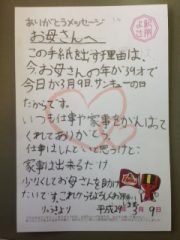 ありがとうメッセージ
お母さんへ
この手紙を出す理由は、
今、お母さんの年が39才で
今日が3月9日、サンキューの日
だからです。
いつも仕事や家事をがんばって
くれてありがとう。
仕事はしんどいと思うけど、
家事は出来るだけ
少なくしてお母さんを助け
たいです。これからもよろしくお願い
りゅうきより
平成29年3月9日